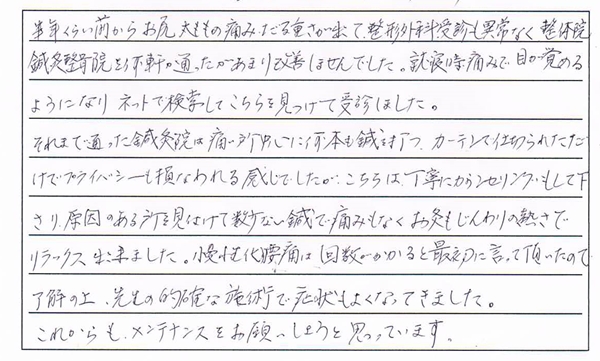 半年くらい前からお尻、太ももの痛みだる重さが出て、整形外科受診も異常なく整体院
鍼灸整骨院を何軒か通ったがあまり改善しませんでした。就寝時痛みで目が覚める
ようになり ネットで検索してこちらを見つけて受診しました。
それまで通った鍼灸院は痛い所中心に何本も鍼を打つ、カーテンで仕切られただ
けでプライバシーも損なわれる感じでしたが、こちらは、丁寧にカウンセリングもして下
さり、原因のある所を見付けて数少ない鍼で痛みもなくお灸もじんわりの熱さで
リラックス出来ました。慢性化腰痛は回数がかかると最初に言って頂いたので
了解の上、先生の的確な施術で症状もよくなってきました。
これからも、メンテナンスをお願いしようと思っています。